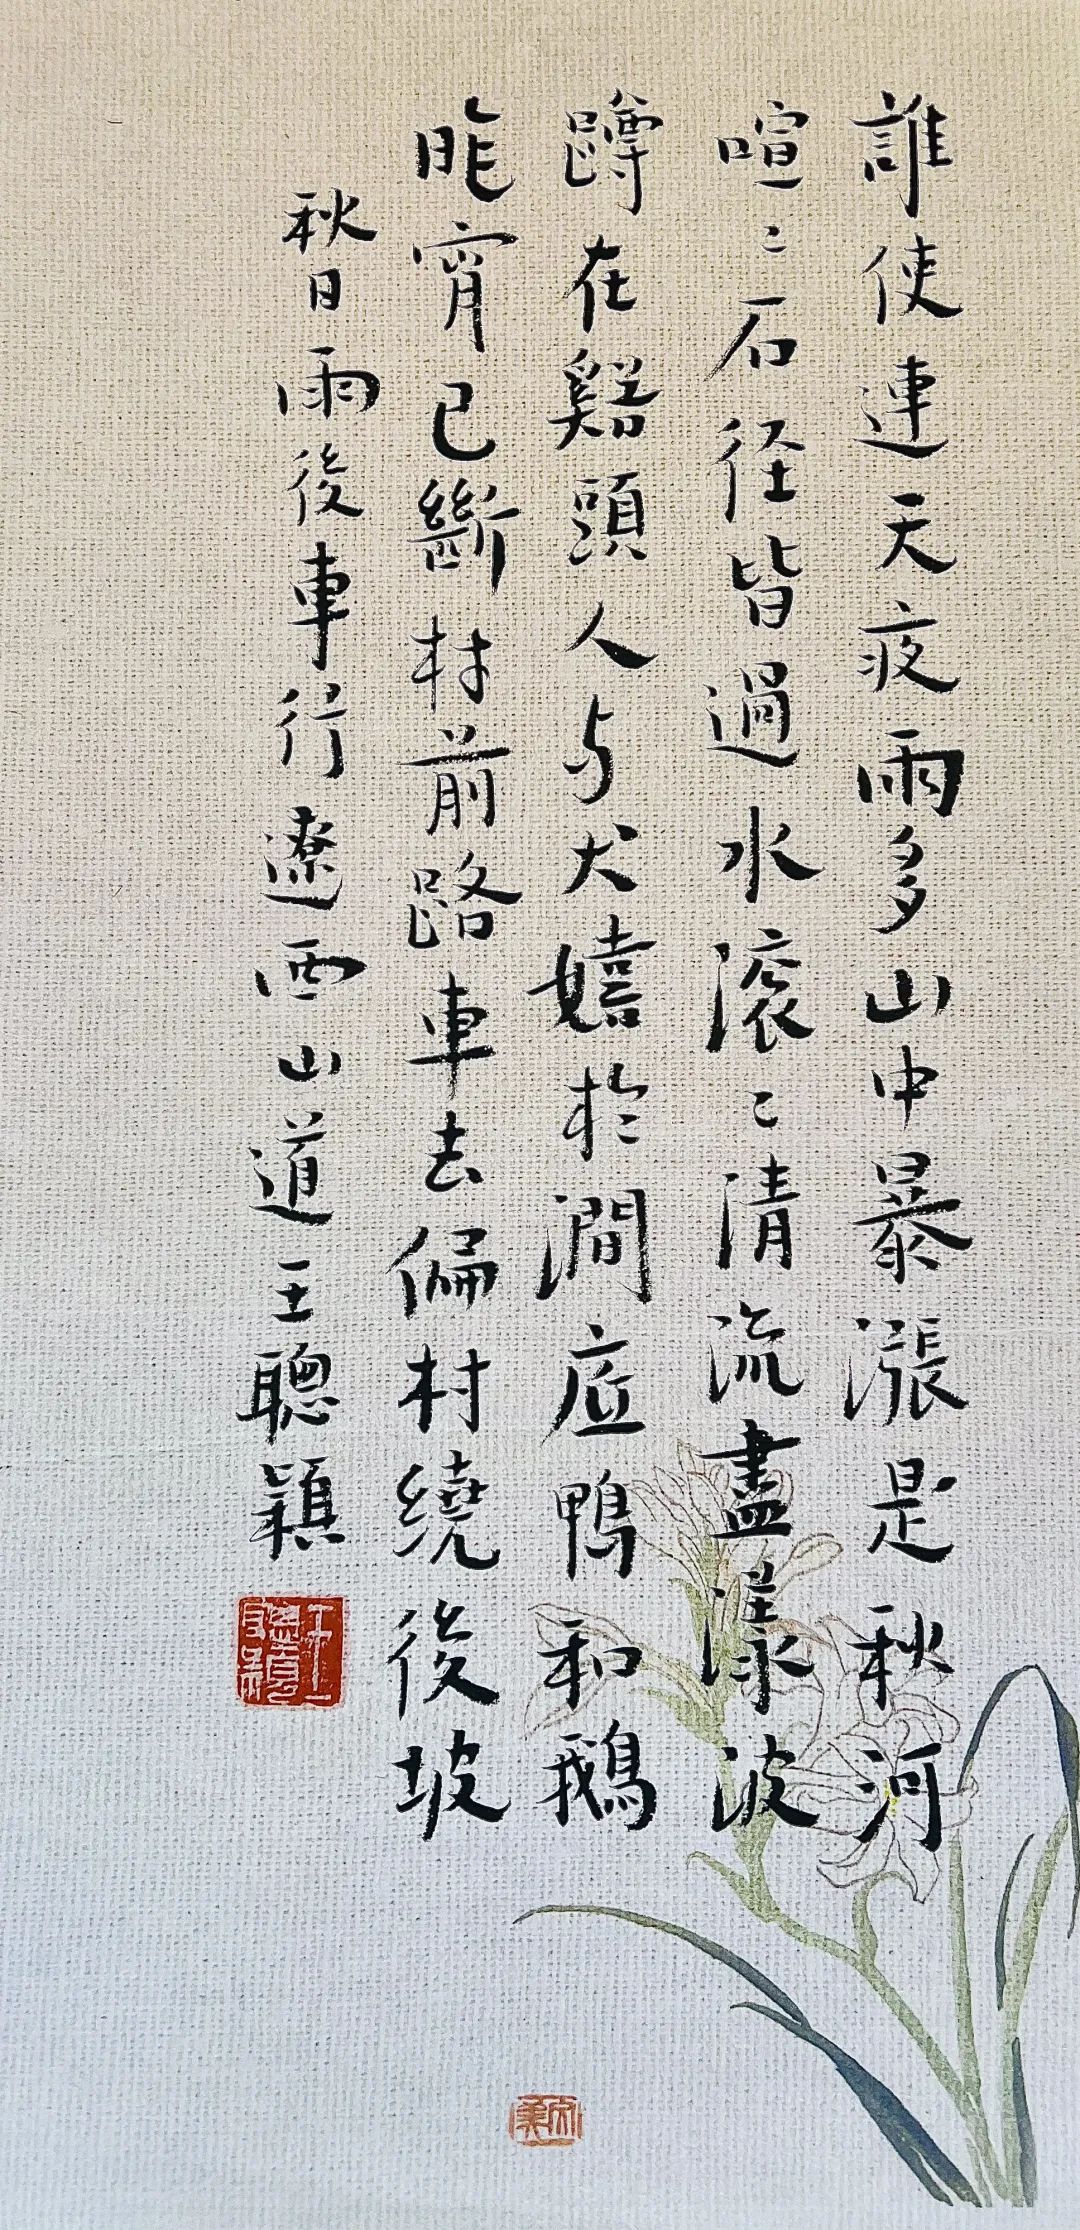 誰使連天夜雨多山中暴漲是秋河
喧〻石径皆過水滾〻清流盡漾波
蹲在谿頭人与犬嬉於澗底鴨和鵝
昨宵已斷村前路車去偏村繞後坡
秋日雨後車行遼西山道王聰穎